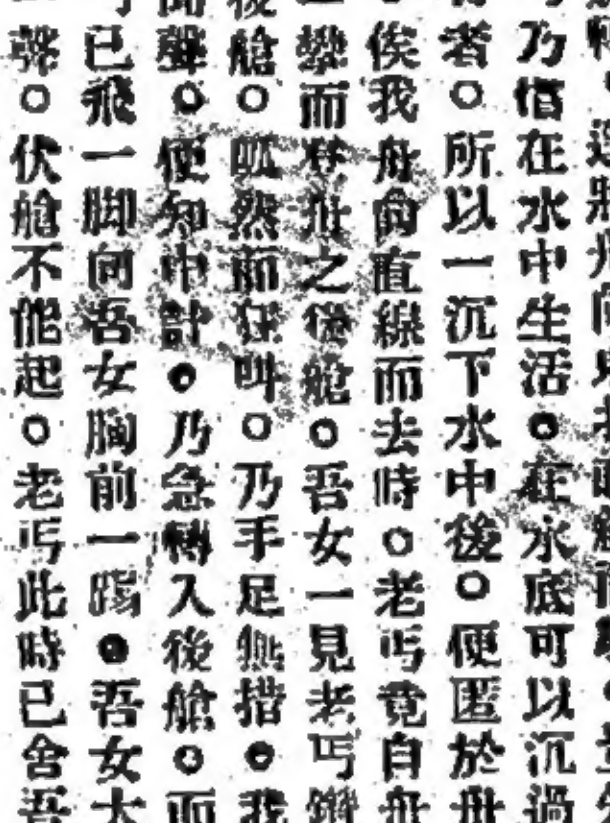 乃惛在水中生活。在水底可以沉過
者。所以一沉下水中後。便匿於舟
俟我舟向直線而去時。老丐竟自舟
攀而登舟之後艙。吾女一見老丐躋
後艙。呱然而狂叫。乃手足無措。我
聲。便知中計。乃急轉入後艙。而
已飛一脚向吾女胸前一踢。吾女大
聲。伏艙不能起。老丐此時已舍吾